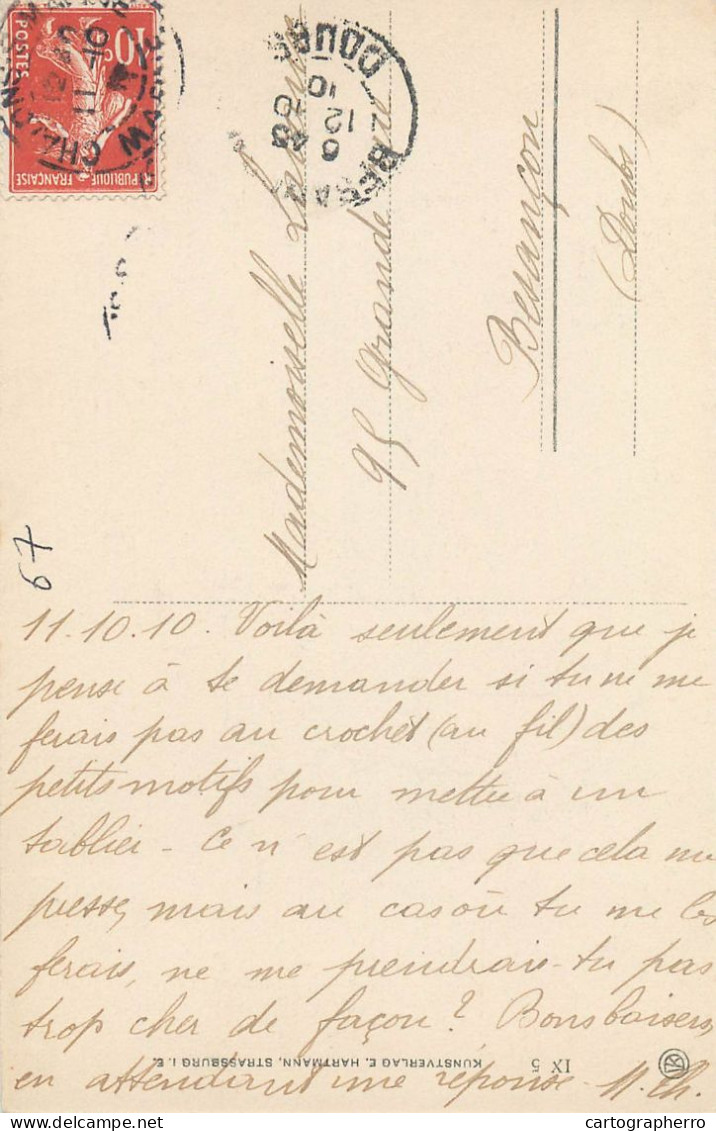 10c
POSTES
REPUBLIQUE FRANÇAISE
DOUBS
6 45
12
10
10
Mademoiselle
95 Grande
Besançon
(Doubs)
67
11.10.10. Voilà seulement que je
pense à te demander si tu ne me
ferais pas au crochet (au fil) des
petits motifs pour mettre à un
tablier - Ce n'est pas que cela me
presse, mais au cas où tu me les
ferais, ne me prendrais-tu pas
trop cher de façon ? Bons baisers
en attendant une réponse - M. Ch.
KUNSTVERLAG E. HARTMANN, STRASSBURG I. E.
IX 5
delcampe.net
cartographerro